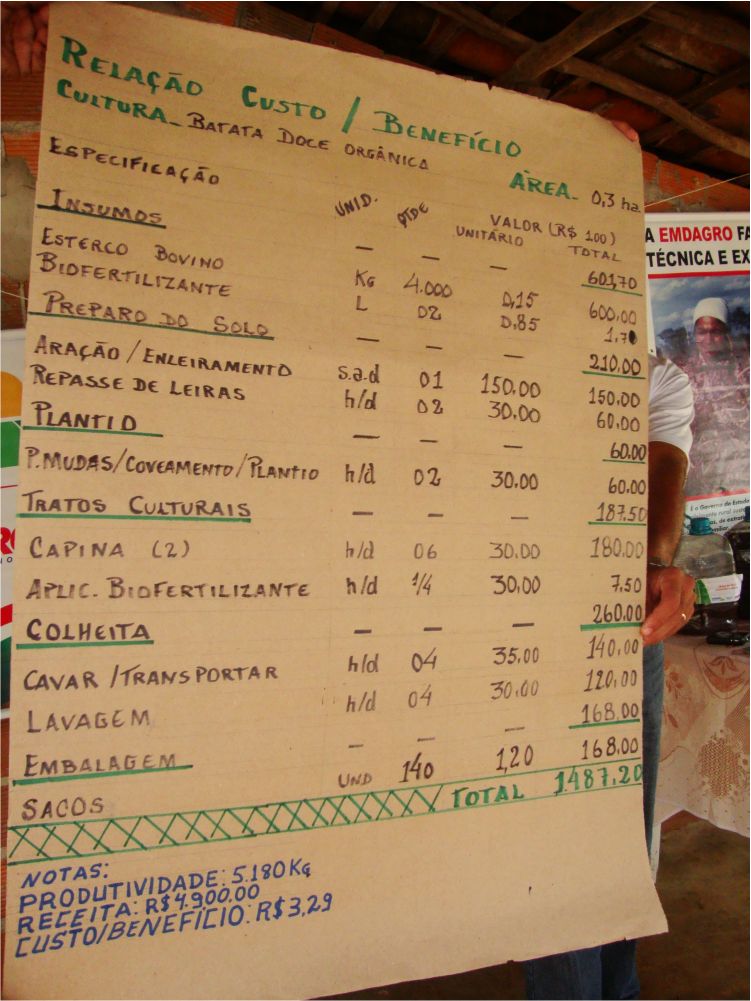 RELAÇÃO CUSTO / BENEFÍCIO
CULTURA_ BATATA DOCE ORGÂNICA
ÁREA_ 0,3 ha
ESPECIFICAÇÃO UNID. QTDE VALOR (R$ 1,00)
UNITÁRIO TOTAL
INSUMOS — — — 601,70
ESTERCO BOVINO Kg 4.000 0,15 600,00
BIOFERTILIZANTE L 02 0,85 1,70
PREPARO DO SOLO — — — 210,00
ARAÇÃO/ENLEIRAMENTO s.a.d 01 150,00 150,00
REPASSE DE LEIRAS h/d 02 30,00 60,00
PLANTIO — — — 60,00
P.MUDAS/COVEAMENTO/PLANTIO h/d 02 30,00 60,00
TRATOS CULTURAIS — — — 187,50
CAPINA (2) h/d 06 30,00 180,00
APLIC. BIOFERTILIZANTE h/d 1/4 30,00 7,50
COLHEITA — — — 260,00
CAVAR/TRANSPORTAR h/d 04 35,00 140,00
LAVAGEM h/d 04 30,00 120,00
EMBALAGEM — — — 168,00
SACOS UND 140 1,20 168,00
TOTAL 1.487,20
NOTAS:
PRODUTIVIDADE: 5.180Kg
RECEITA: R$4.900,00
CUSTO/BENEFÍCIO: R$3,29
A EMDAGRO FA
TÉCNICA E EX